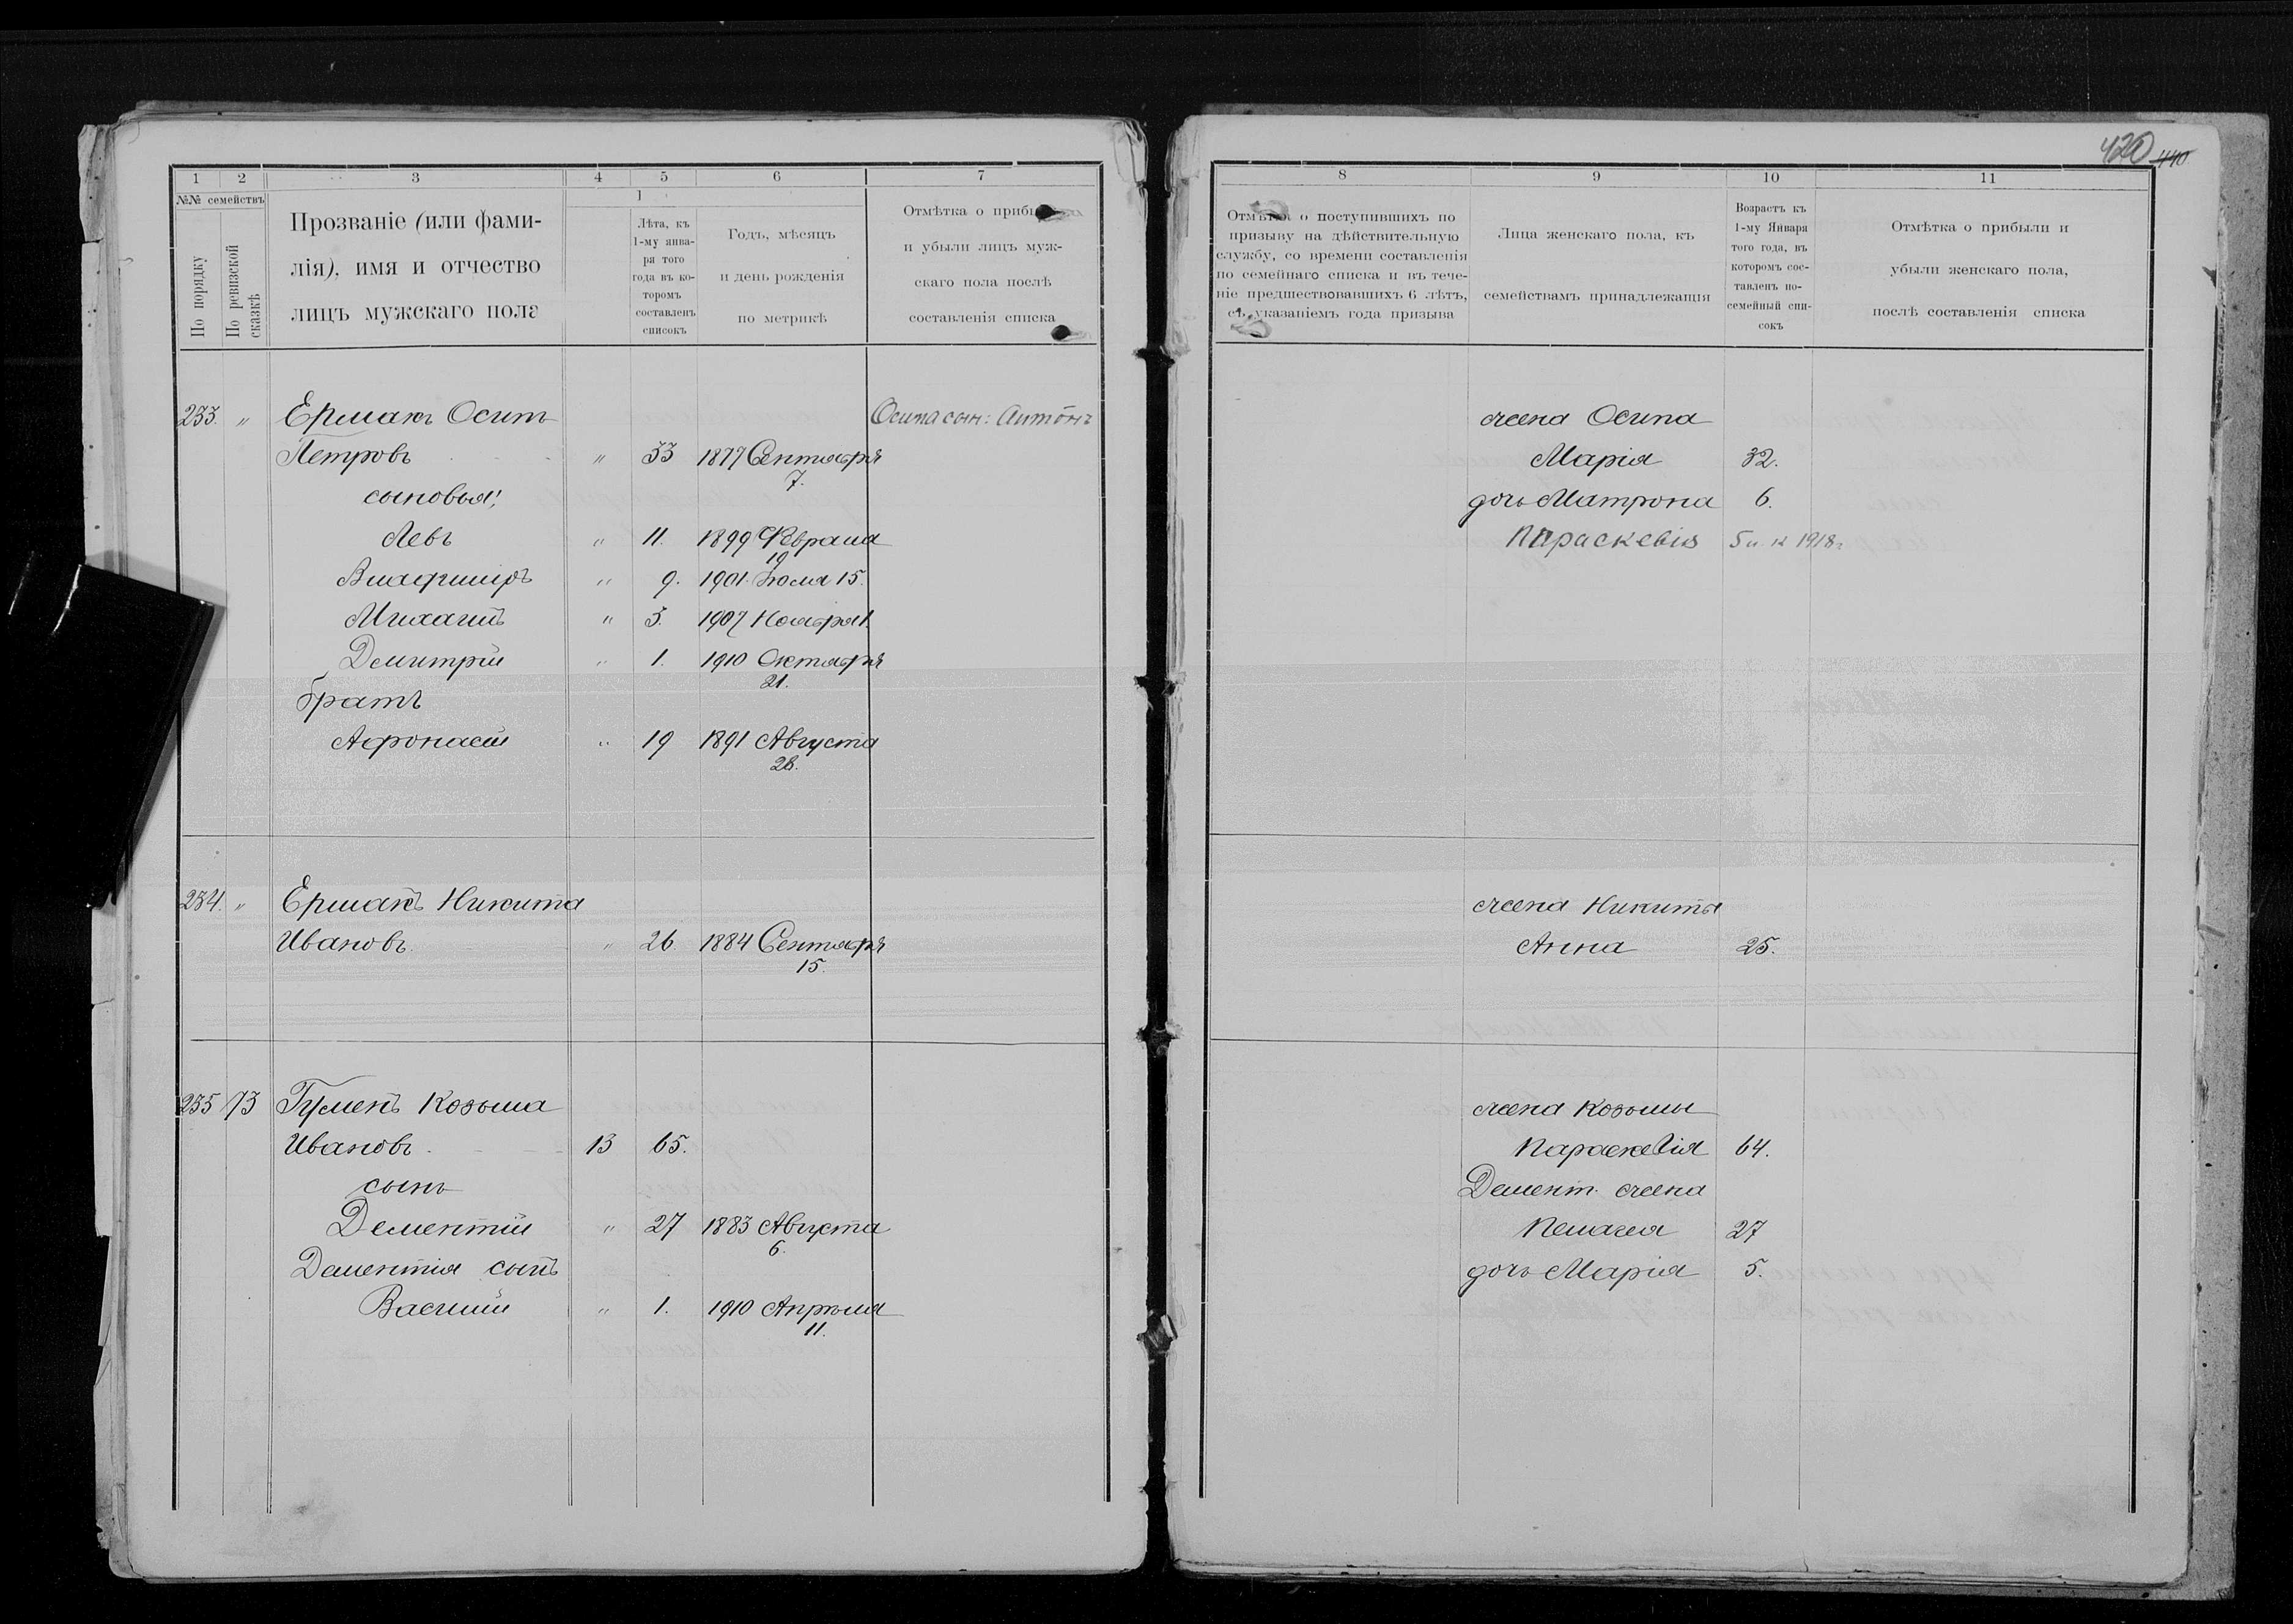 420 440
1 2 3 4 5 6 7
№№ семействъ
По порядку
По ревизской сказкѣ
Прозваніе (или фами-
лія), имя и отчество
лицъ мужскаго пола
Лѣта, къ
1-му янва-
ря того
года въ ко-
торомъ
составленъ
списокъ
Годъ, мѣсяцъ
и день рожденія
по метрикѣ
Отмѣтка о прибы
и убыли лицъ муж-
скаго пола послѣ
составленія списка
233. " Ермакъ Осипъ Осипа сын: Антонъ
Петровъ " 33 1877 Сентября
7.
сыновья:
Левъ " 11. 1899 Февраля
19
Владиміръ " 9. 1901 Іюля 15.
Михаилъ " 3. 1907 Ноября 1.
Дмитрій " 1. 1910 Октября
21.
братъ
Афонасій " 19 1891 Августа
28.
234. " Ермакъ Никита
Ивановъ " 26. 1884 Сентября
15.
235 73 Гуменъ Козьма
Ивановъ 13 65.
сынъ
Дементій " 27 1883 Августа
6.
Дементія сынъ
Василій " 1. 1910 Апрѣля
11.
8 9 10 11
Отмѣтка о поступившихъ по
призыву на дѣйствительную
службу, со времени составленія
по семейнаго списка и въ тече-
ніе предшествовавшихъ 6 лѣтъ,
съ указаніемъ года призыва
Лица женскаго пола, къ
семействамъ принадлежащія
Возрастъ къ
1-му Января
того года, въ
которомъ сос-
тавленъ по-
семейный спи-
сокъ
Отмѣтка о прибыли и
убыли женскаго пола,
послѣ составленія списка
жена Осипа
Марія 32.
дочь Матрона 6.
Параскевія 5 1918г
жена Никиты
Анна 25.
жена Козьмы
Параскевія 64.
Демент. жена
Пелагея 27
дочь Марія 5.